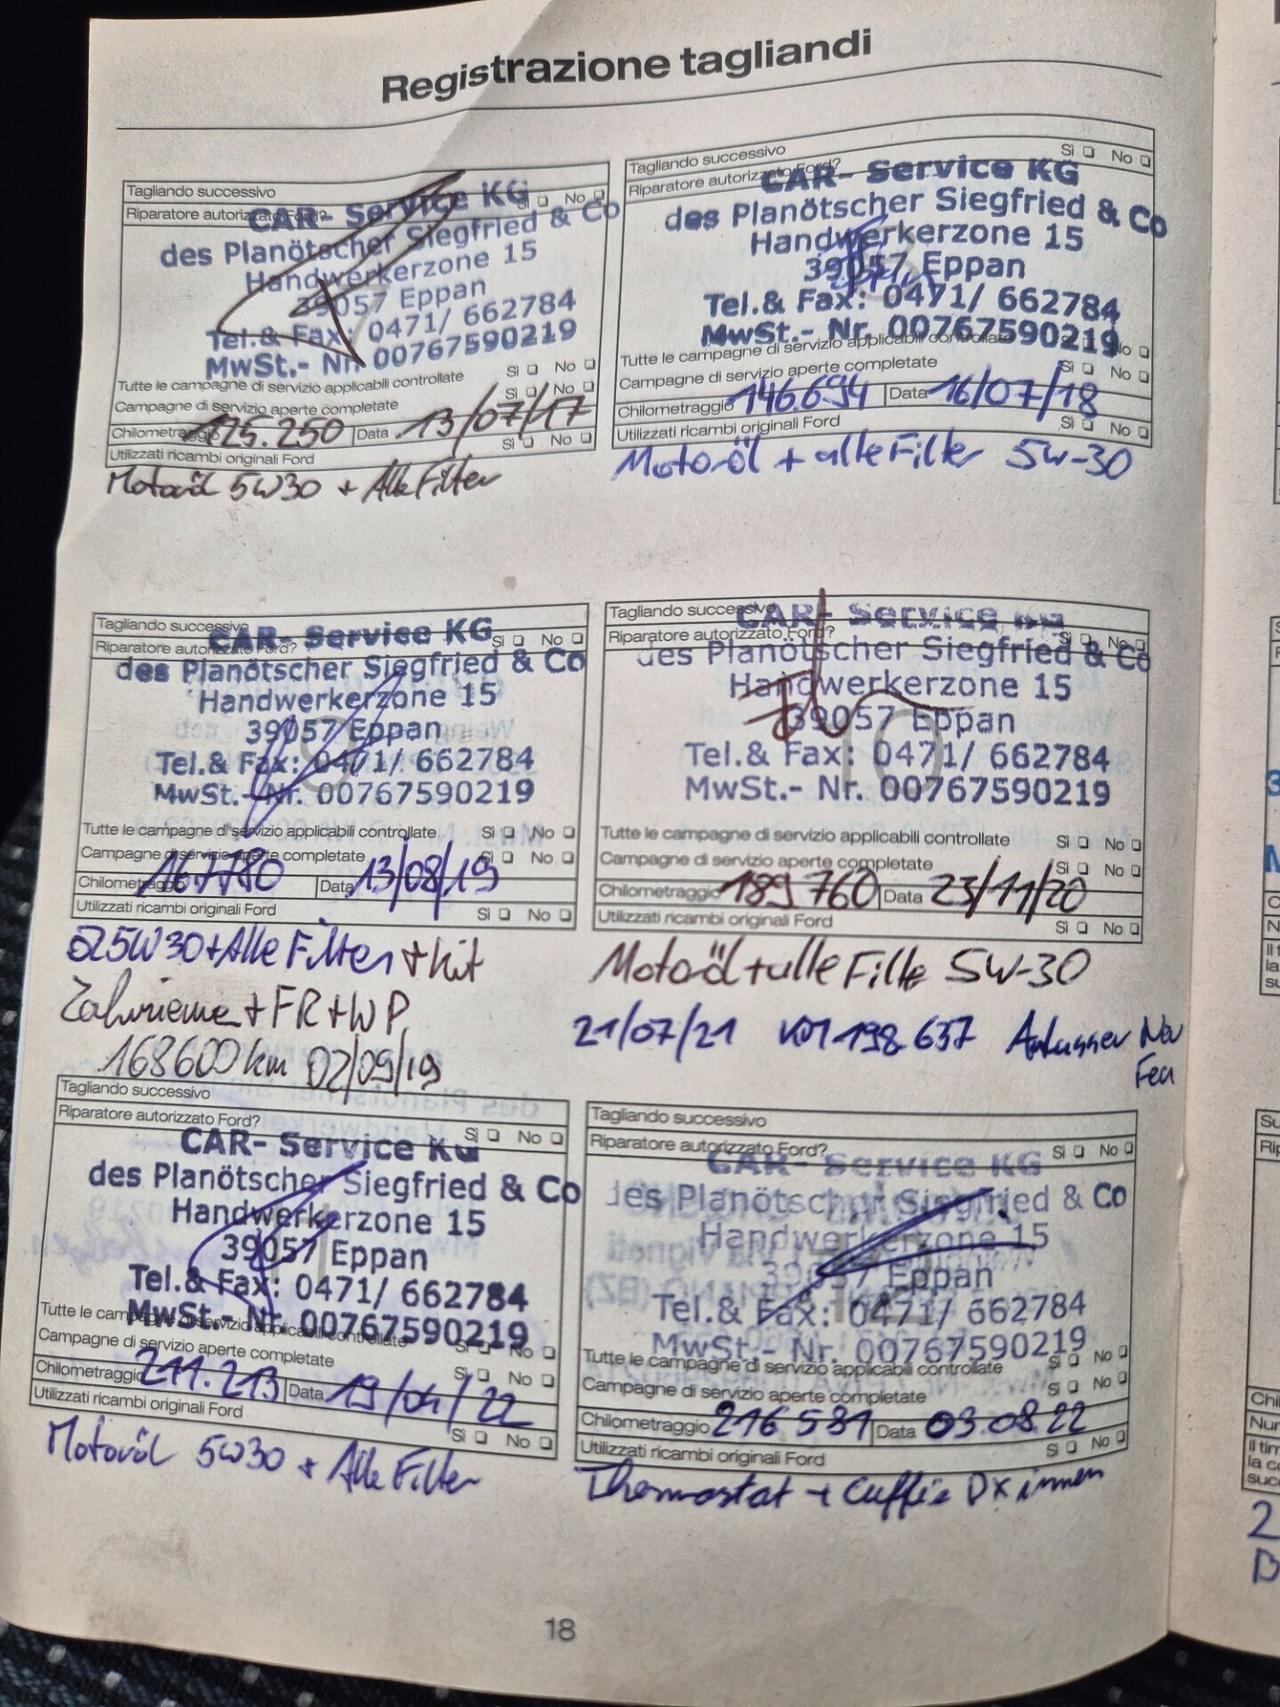 Registrazione tagliandi
Tagliando successivo
Riparatore autorizzato Ford? Sì No
CAR- Service KG
des Planötscher Siegfried & Co
Handwerkerzone 15
39057 Eppan
Tel.& Fax: 0471/ 662784
MwSt.- Nr. 00767590219
Tutte le campagne di servizio applicabili controllate Sì No
Campagne di servizio aperte completate Sì No
Chilometraggio 125.250 Data 13/07/17
Utilizzati ricambi originali Ford Sì No
Motoröl 5W30 + Alle Filter
Tagliando successivo Sì No
Riparatore autorizzato Ford?
CAR- Service KG
des Planötscher Siegfried & Co
Handwerkerzone 15
39057 Eppan
Tel.& Fax: 0471/ 662784
MwSt.- Nr. 00767590219
Tutte le campagne di servizio applicabili controllate No
Campagne di servizio aperte completate Sì No
Chilometraggio 146.694 Data 16/07/18
Utilizzati ricambi originali Ford Sì No
Motoröl + alle Filter 5W-30
Tagliando successivo
Riparatore autorizzato Ford? Sì No
CAR- Service KG
des Planötscher Siegfried & Co
Handwerkerzone 15
39057 Eppan
Tel.& Fax: 0471/ 662784
MwSt.- Nr. 00767590219
Tutte le campagne di servizio applicabili controllate Sì No
Campagne di servizio aperte completate Sì No
Chilometraggio 167780 Data 13/08/19
Utilizzati ricambi originali Ford Sì No
Öl 5W30 + Alle Filter + Kit
Zahnrieme + FR + WP
168600 km 02/09/19
Tagliando successivo
Riparatore autorizzato Ford? Sì No
CAR- Service KG
des Planötscher Siegfried & Co
Handwerkerzone 15
39057 Eppan
Tel.& Fax: 0471/ 662784
MwSt.- Nr. 00767590219
Tutte le campagne di servizio applicabili controllate Sì No
Campagne di servizio aperte completate Sì No
Chilometraggio 189760 Data 23/11/20
Utilizzati ricambi originali Ford Sì No
Motoröl + alle Filter 5W-30
21/07/21 KM 198 637
Tagliando successivo
Riparatore autorizzato Ford? Sì No
CAR- Service KG
des Planötscher Siegfried & Co
Handwerkerzone 15
39057 Eppan
Tel.& Fax: 0471/ 662784
MwSt.- Nr. 00767590219
Tutte le campagne di servizio applicabili controllate Sì No
Campagne di servizio aperte completate Sì No
Chilometraggio 211.213 Data 19/04/22
Utilizzati ricambi originali Ford Sì No
Motoröl 5W30 + Alle Filter
Tagliando successivo
Riparatore autorizzato Ford? Sì No
CAR- Service KG
des Planötscher Siegfried & Co
Handwerkerzone 15
39057 Eppan
Tel.& Fax: 0471/ 662784
MwSt.- Nr. 00767590219
Tutte le campagne di servizio applicabili controllate Sì No
Campagne di servizio aperte completate Sì No
Chilometraggio 216531 Data 03.08.22
Utilizzati ricambi originali Ford Sì No
Thermostat + Cuffie DX innen
18